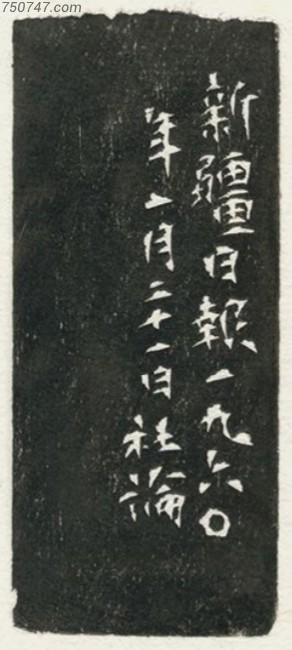 750747.com
新疆日報一九六〇
年一月二十一日社論